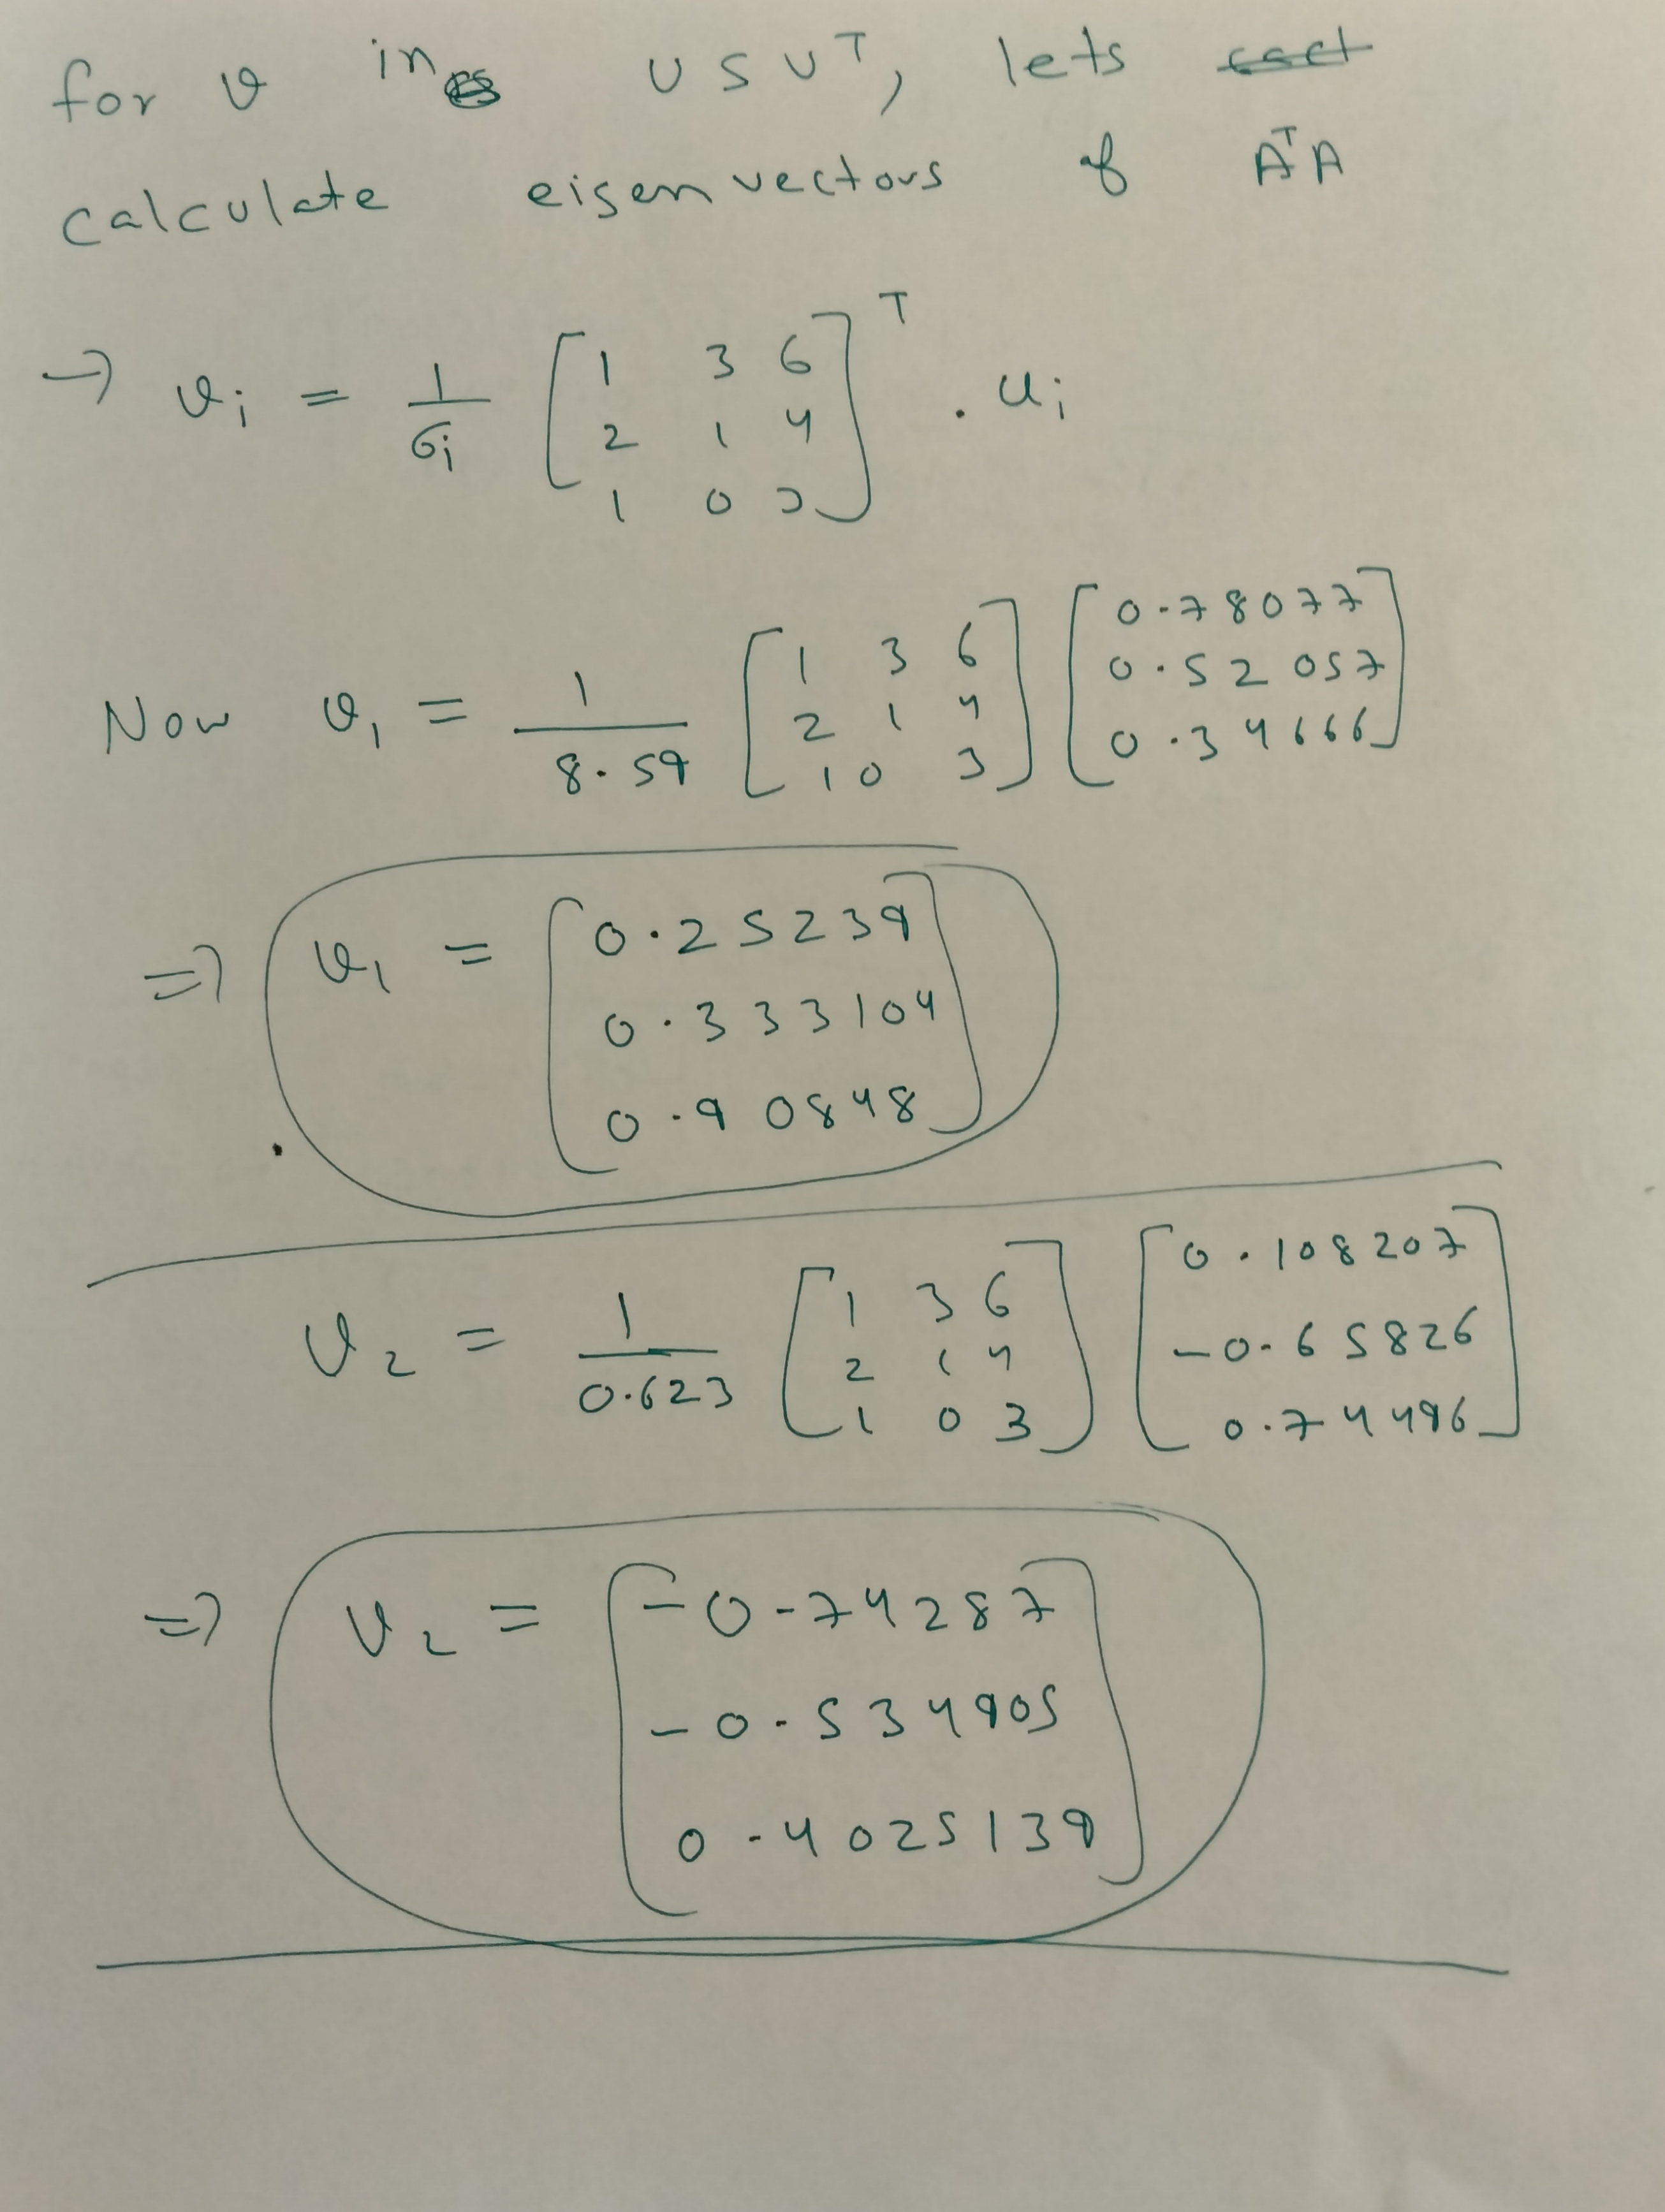 for v in U S U^T, lets
calculate eigen vectors of A^T A
→ v_i = 1/σ_i [1 3 6; 2 1 4; 1 0 3]^T . u_i
Now v_1 = 1/8.59 [1 3 6; 2 1 4; 1 0 3] [0.78077; 0.52057; 0.34666]
⇒ v_1 = [0.25239; 0.333104; 0.90848]
v_2 = 1/0.623 [1 3 6; 2 1 4; 1 0 3] [0.108207; -0.65826; 0.74496]
⇒ v_2 = [-0.74287; -0.534905; 0.4025139]